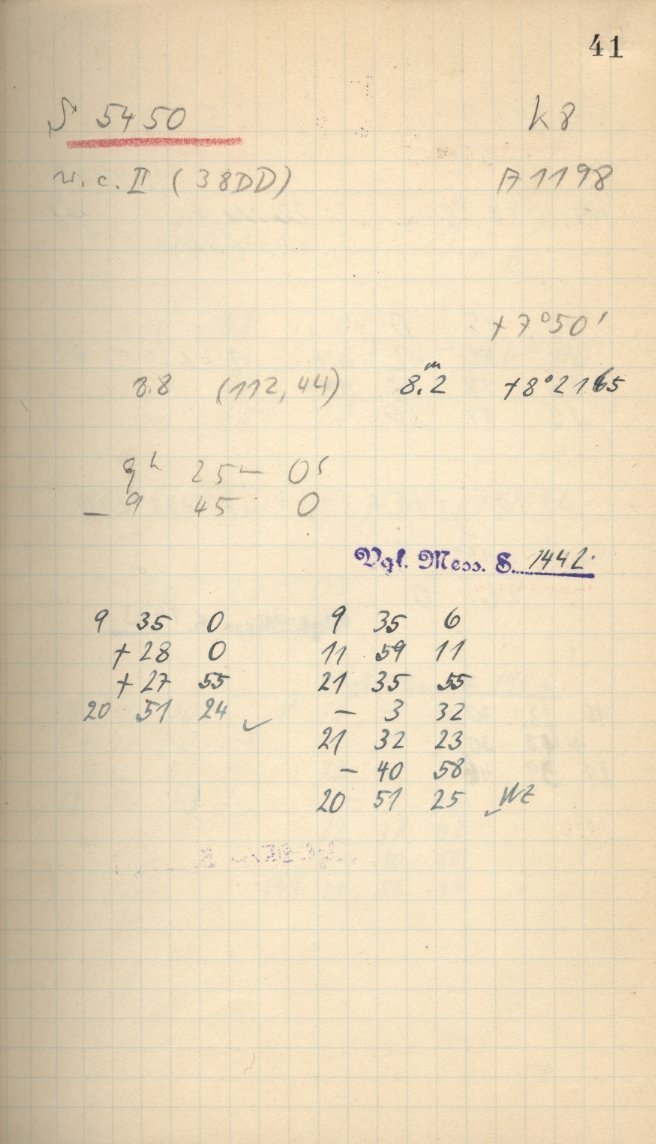 41
S 5450 K8
u.c. II (38DD) A1198
+7°50'
8.8 (112,44) 8.2ᵐ +8°21.65
9ʰ 25ᵐ 0ˢ
– 9 45 0
Vgl. Mess. S. 1442
9 35 0 9 35 6
+28 0 11 59 11
+27 55 21 35 55
20 51 24 ✓ – 3 32
21 32 23
– 40 58
20 51 25 ✓